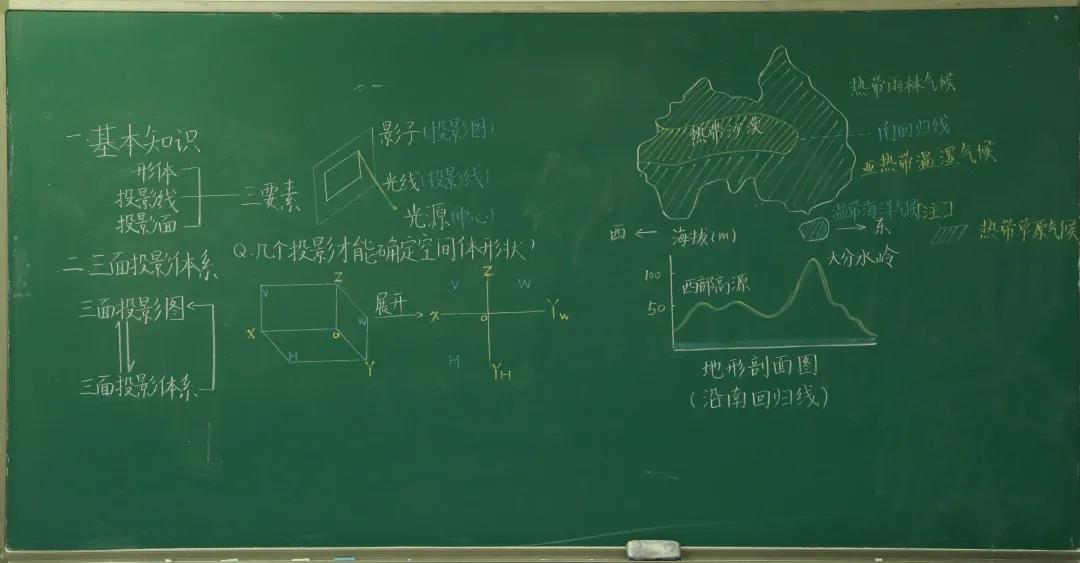 一.基本知识
形体
投影线
投影面
三要素
影子(投影图)
光线(投影线)
光源(中心)
二.三面投影体系
Q:几个投影才能确定空间体形状?
三面投影图
三面投影体系
V
Z
X
O
W
H
Y
展开
Z
V
W
X
O
Yw
H
YH
热带雨林气候
热带沙漠
南回归线
亚热带温湿气候
温带海洋气候[注]
热带草原气候
西 ← 海拔(m) → 东
大分水岭
100
西部高源
50
地形剖面图
(沿南回归线)